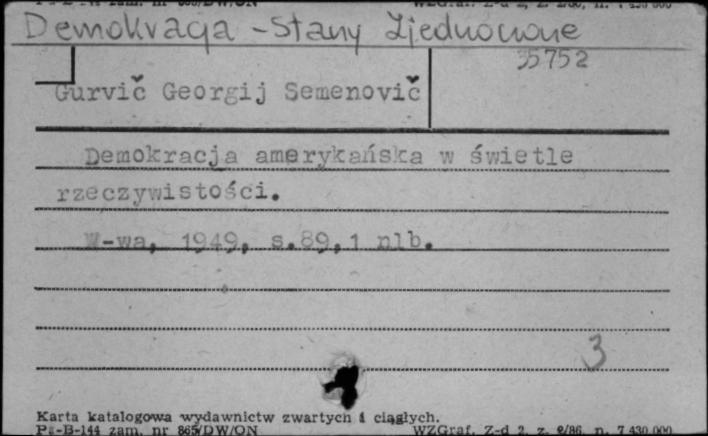 Pu-B-144 zam. nr 865/DW/ON WZGraf. Z-d 2, z. 2/86, n. 7 430 000
Demokracja - Stany Zjednoczone
35752
Gurvič Georgij Semenovič
Demokracja amerykańska w świetle
rzeczywistości.
W-wa, 1949, s.89,1 nlb.
3
Karta katalogowa wydawnictw zwartych i ciągłych.
Pu-B-144 zam. nr 865/DW/ON WZGraf. Z-d 2, z. 2/86, n. 7 430 000